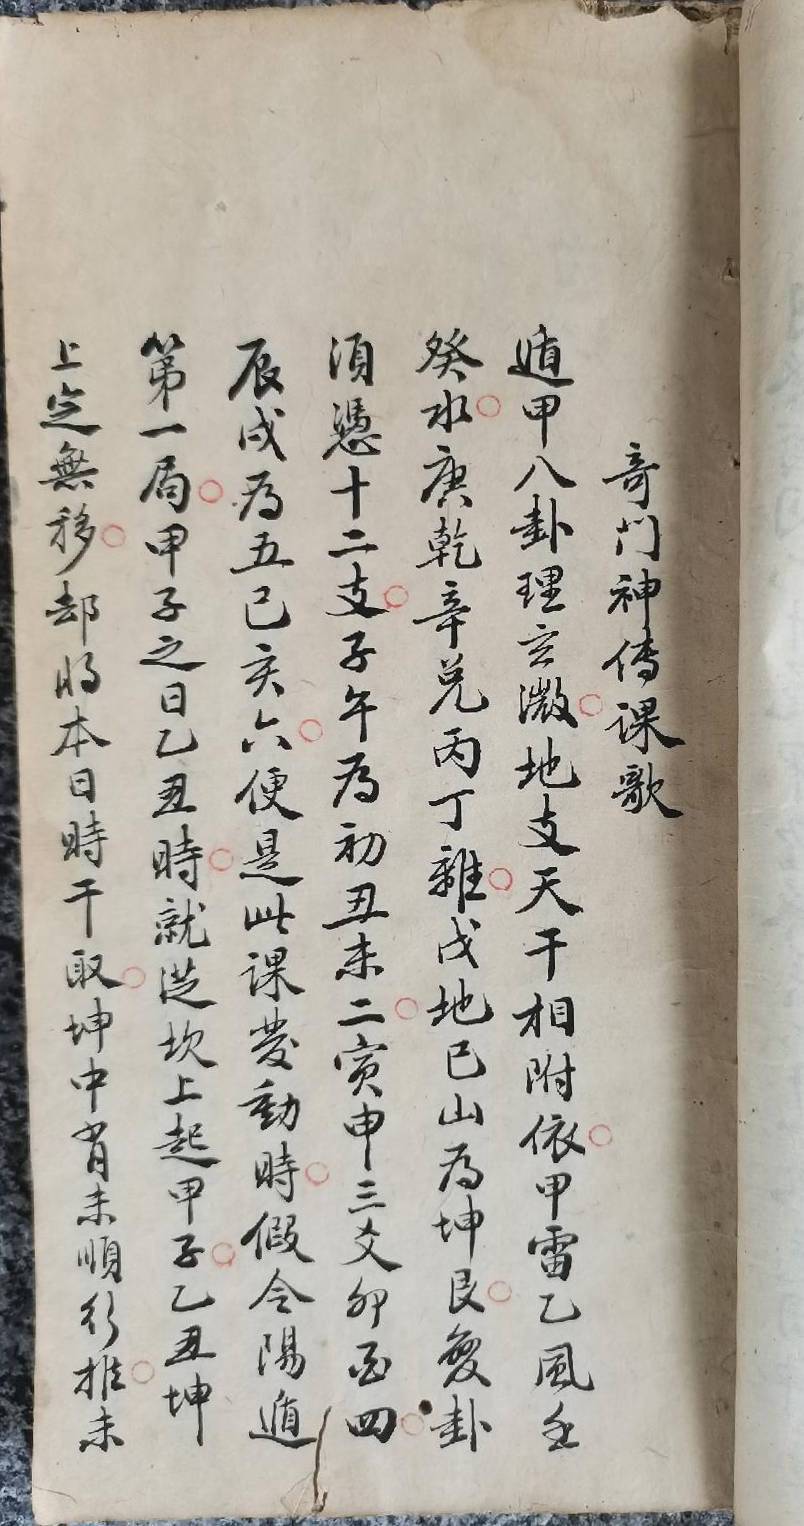 奇門神傳課歌
遁甲八卦理玄微地支天干相附依甲雷乙風壬
癸水庚乾辛兌丙丁離戊地己山為坤艮變卦
須憑十二支子午為初丑未二寅申三爻卯酉四
辰戌為五巳亥六便是此課發動時假令陽遁
第一局甲子之日乙丑時就從坎上起甲子乙丑坤
上定無移却將本日時干取坤中肖未順行推未